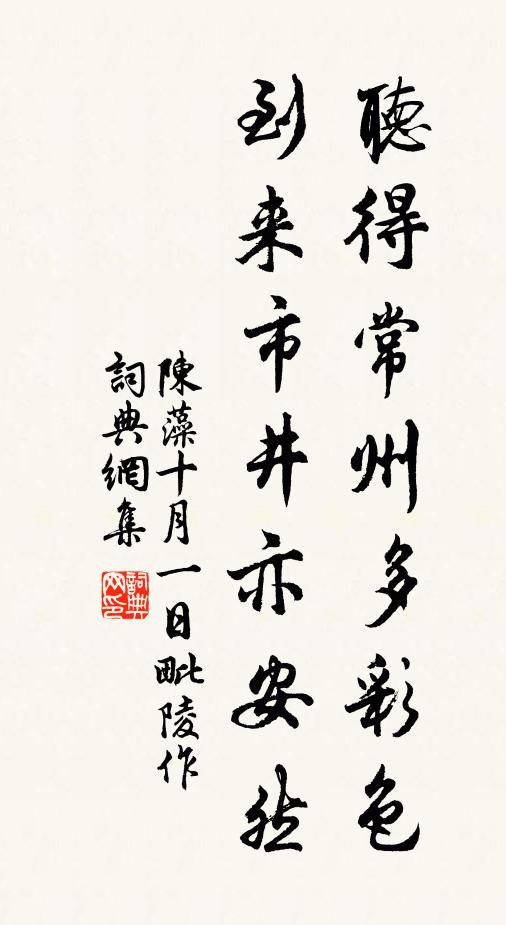 聽得常州多彩色
到来市井亦安然
陳藻十月一日毗陵作
詞典網集
詞典网印